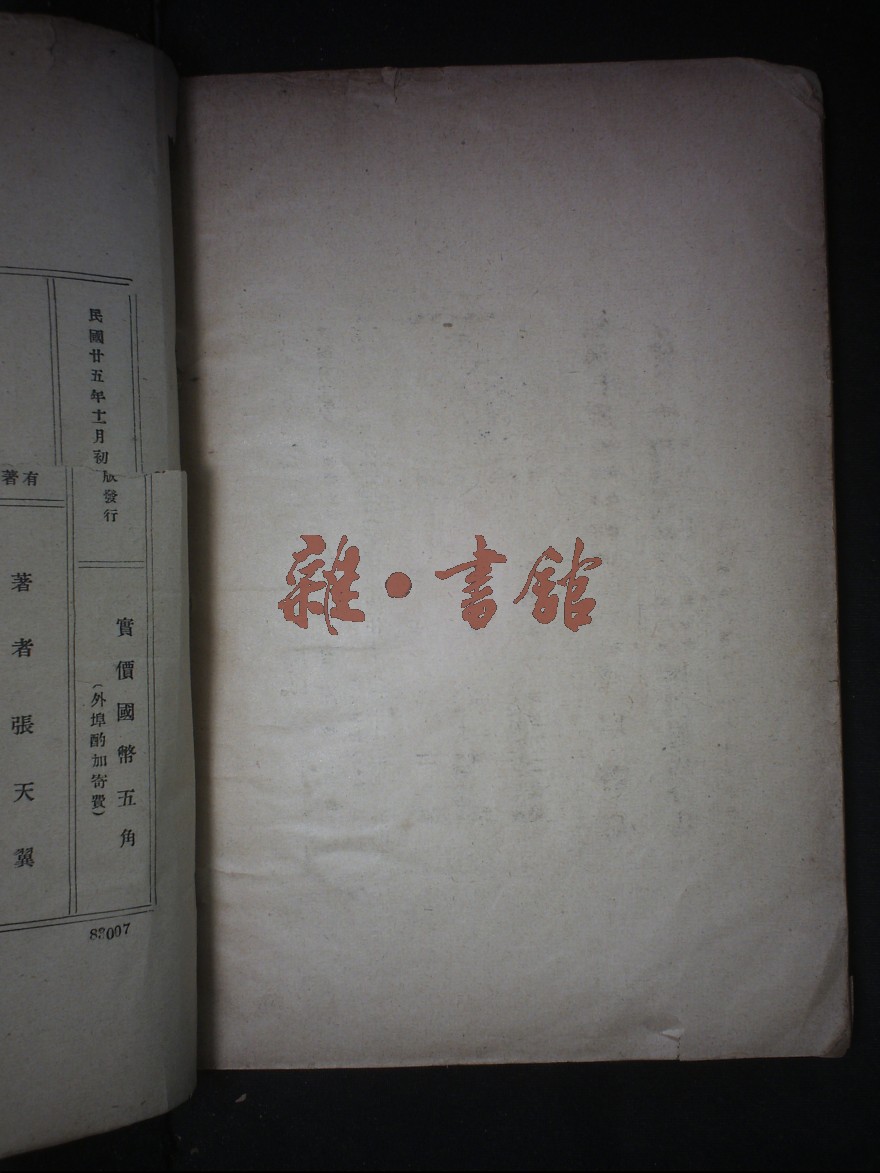 民國廿五年十一月初版發行
實價國幣五角
(外埠酌加寄費)
有著
著者張天翼
83007
雜·書館